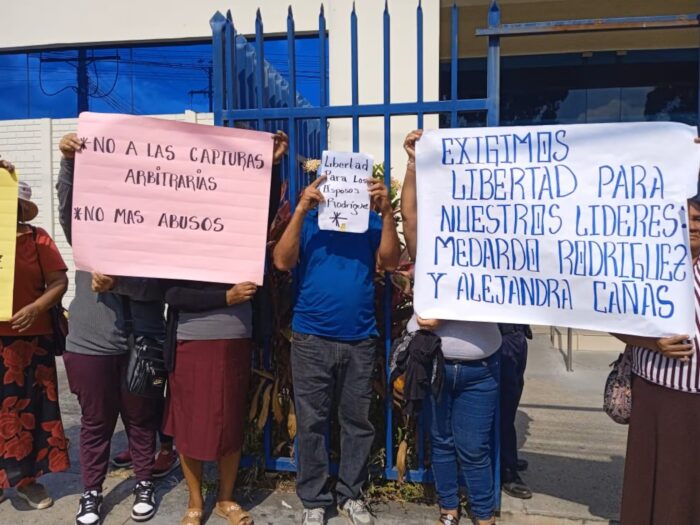 *NO A LAS CAPTURAS
ARBITRARIAS
*NO MAS ABUSOS
Libertad
Para Los
Esposos
Rodrígue
EXIGIMOS
LIBERTAD PARA
NUESTROS LIDERES:
MEDARDO RODRIGUEZ
Y ALEJANDRA CAÑAS